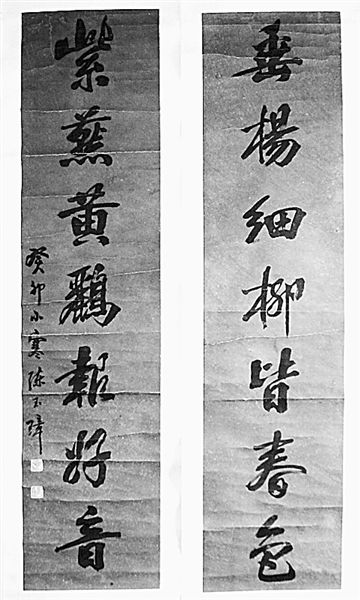 垂楊細柳皆春色
紫燕黃鸝報好音
癸卯小寒陳玉璋